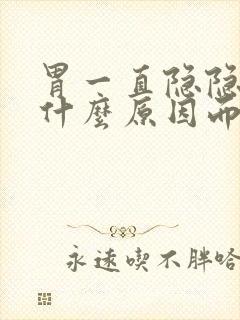 胃一直隐隐
什麼原因而
永遠喫不胖哈